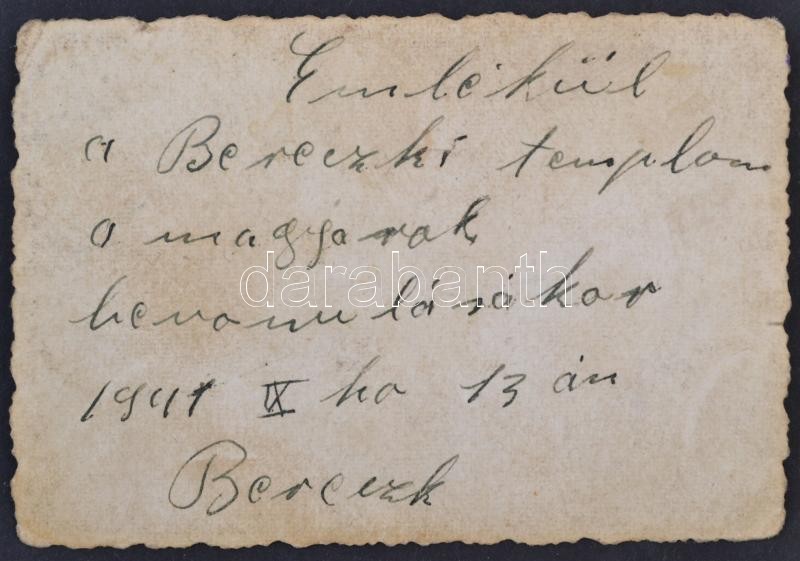 Emlékül
a Bereczki templom
a magyarok
darabanth.com
bevonulásakor
1941 IX ho 13 án
Bereczk